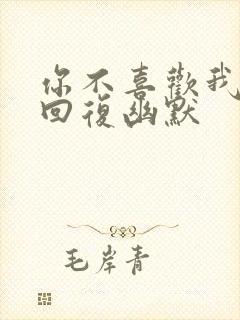 你不喜歡我
回復幽默
毛岸青